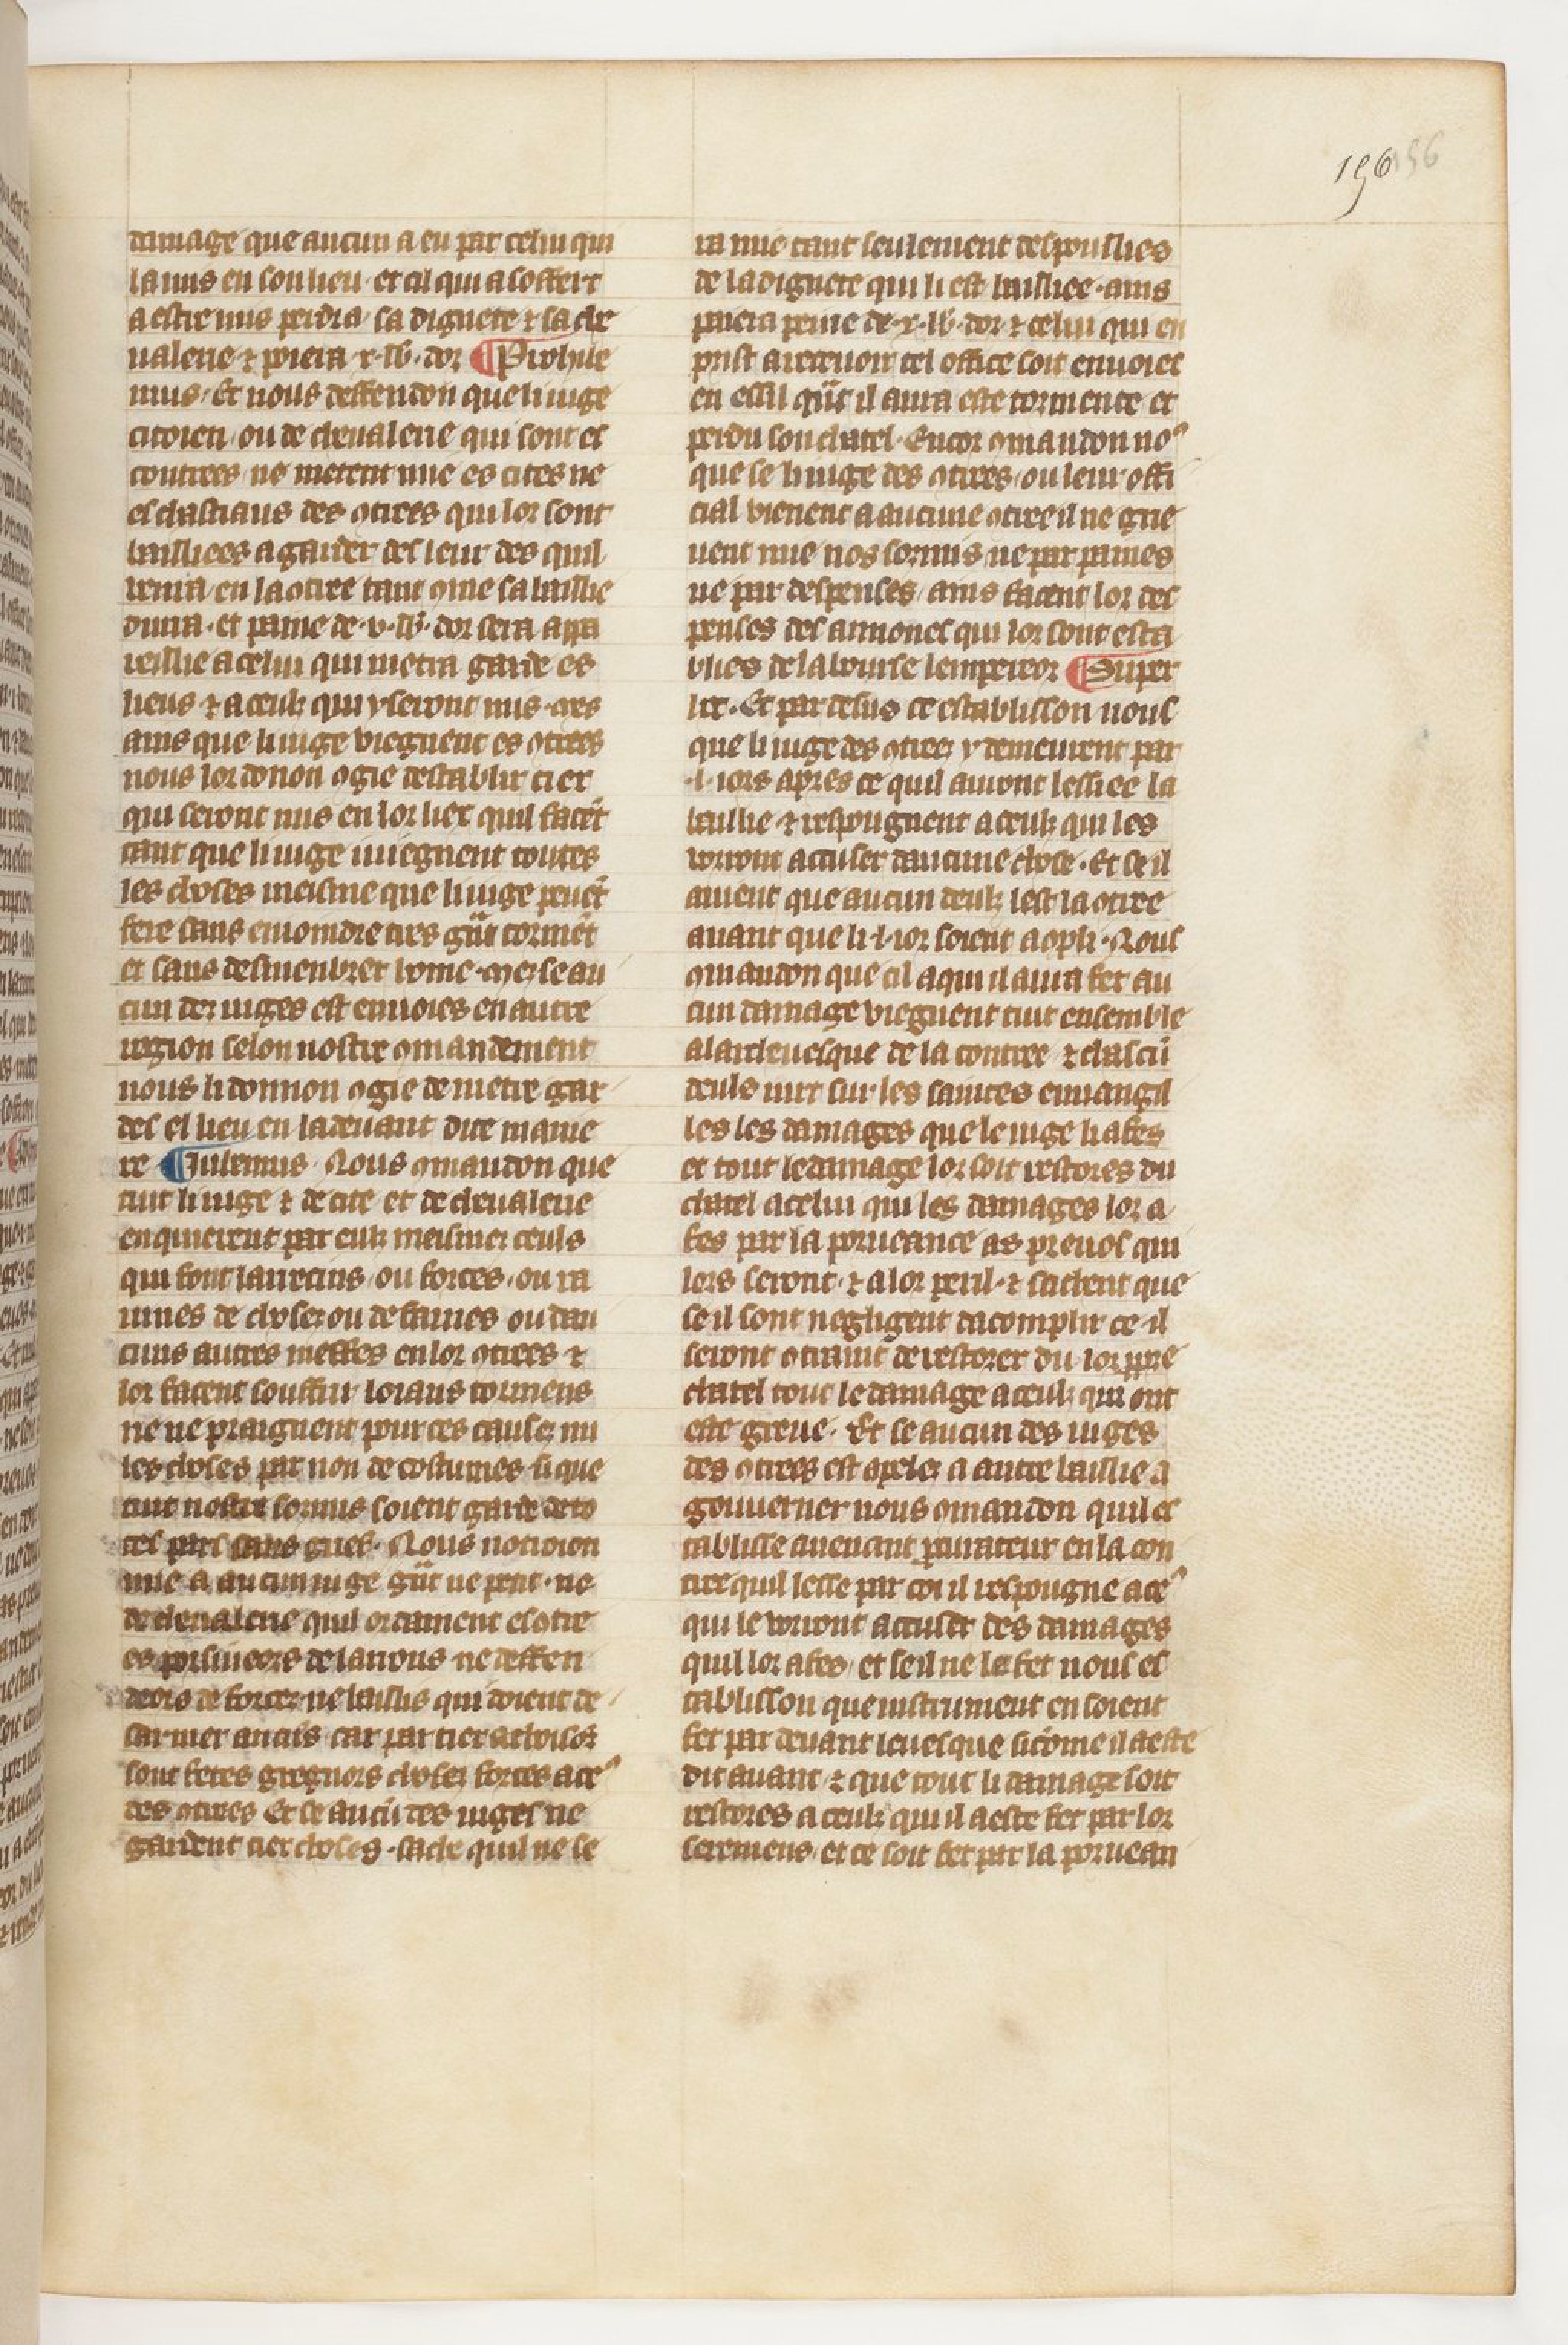 196 156
damage que aucun a eu par celui qui
la mis en son lieu · et cil qui a soffert
a estre mis perdra sa dignete ⁊ sa che
ualerie ⁊ poiera · x · lb · dor ¶ Prohibe
mus · Et nous deffendon que li iuge
citoien · ou de cheualerie qui sont es
contrees ne metent mie es cites ne
es chastiaus des ꝯtrees qui lor sont
bailliees a garder des leur des quil
uenra en la ꝯtree tant ꝯme sa baillie
durra · et paine de · v · lb · dor sera apa
reillie a celui qui metra garde es
lieus ⁊ a ceulz qui y seront mis · mes
ains que li iuge viegnent es ꝯtrees
nous lor donon ꝯgie destablir tiex
qui seront mis en lor liex quil facēt
tant que li iuge uiegnent toutes
les choses meisme que li iuge peuēt
fere sans emoindre tres gᵃnt tormēt
et sans desmenbrer home · mes se au
cun des iuges est enuoies en autre
region selon nostre ꝯmandement
nous li donnon ꝯgie de metre gar
des el lieu en la deuant dite manie
re ¶ Iubemus · Nous ꝯmandon que
tuit li iuge ⁊ de cite et de cheualerie
enquierent par eulz meismes ceuls
qui font larrecins · ou forces · ou ra
uines de choses ou de fames ou dau
cuns autres meffes en lor ꝯtrees ⁊
lor facent souffrir loiaus tormens
ne ne praignent pour ces causes nu
les choses par non de costumes si que
tuit nostre sormis soient garde de to
tes pars sans grief · Nous notroion
mie a aucun iuge gᵃnt ne petit · ne
de cheualerie quil ordainent es ꝯtre
es porsiueors de larrons · ne deffen
deors de forces · ne baillis qui doient de
sarmer aucūs · car par tiex achoisōs
sont fetes gregnors choses forces a ceꝰ
des ꝯtrees Et se aucū des iuges ne
gardent tiex choses · sache quil ne se
ra mie tant seulement despoullies
de la dignete qui li est bailliee · ains
paiera peine de · x · lb · dor · ⁊ celui qui en
prist a receuoir tel office soit enuoiee
en essil qᵃnt il aura este tormente et
perdu son chatel · Encor ꝯmandon noꝰ
que se li iuge des ꝯtrees · ou leur offi
cial vienent a aucune ꝯtree il ne grie
uent mie nos sormis ne par paines
ne par despenses · ains facent lor des
penses des annones qui lor sont esta
blies de la bourse lempereor ¶ Super
het · Et par desus ce establisson nous
que li iuge des ꝯtrees y demeurent par
· l · iors apres ce quil auront lessiee la
baillie ⁊ respougnent a ceulz qui les
uorront accuser daucune chose · Et se il
auient que aucun deulz lest la ꝯtree
auant que li · l · ior soient aꝯpli · Nous
ꝯmandon que cil a qui il aura fet au
cun damage viegnent tuit ensemble
a larcheuesque de la contree ⁊ chascū
deuls iurt sur les saintes euuangil
les les damages que le iuge li a fes
et tout le damage lor soit restores du
chatel a celui qui les damages lor a
fes par la porueance as preuos qui
lors seront · ⁊ a lor peril · ⁊ sachent que
se il sont negligent dacomplir ce il
seront ꝯtraint de restorer du lor ꝓpre
chatel tout le damage a ceulz qui ont
este greue · Et se aucun des iuges
des ꝯtrees est apeles a autre baillie a
gouuerner nous ꝯmandon quil es
tablisse auenant ꝓcurateur en la con
tree quil lesse par coi il respougne a ceꝰ
qui le uorront accuser des damages
quil lor a fes · et se il ne le fet nous es
tablisson que instrument en soient
fet par deuant leuesque si cōme il a este
dit auant · ⁊ que tout li damage soit
restores a ceulz qui il a este fet par lor
seremens · et ce soit fet par la poruean